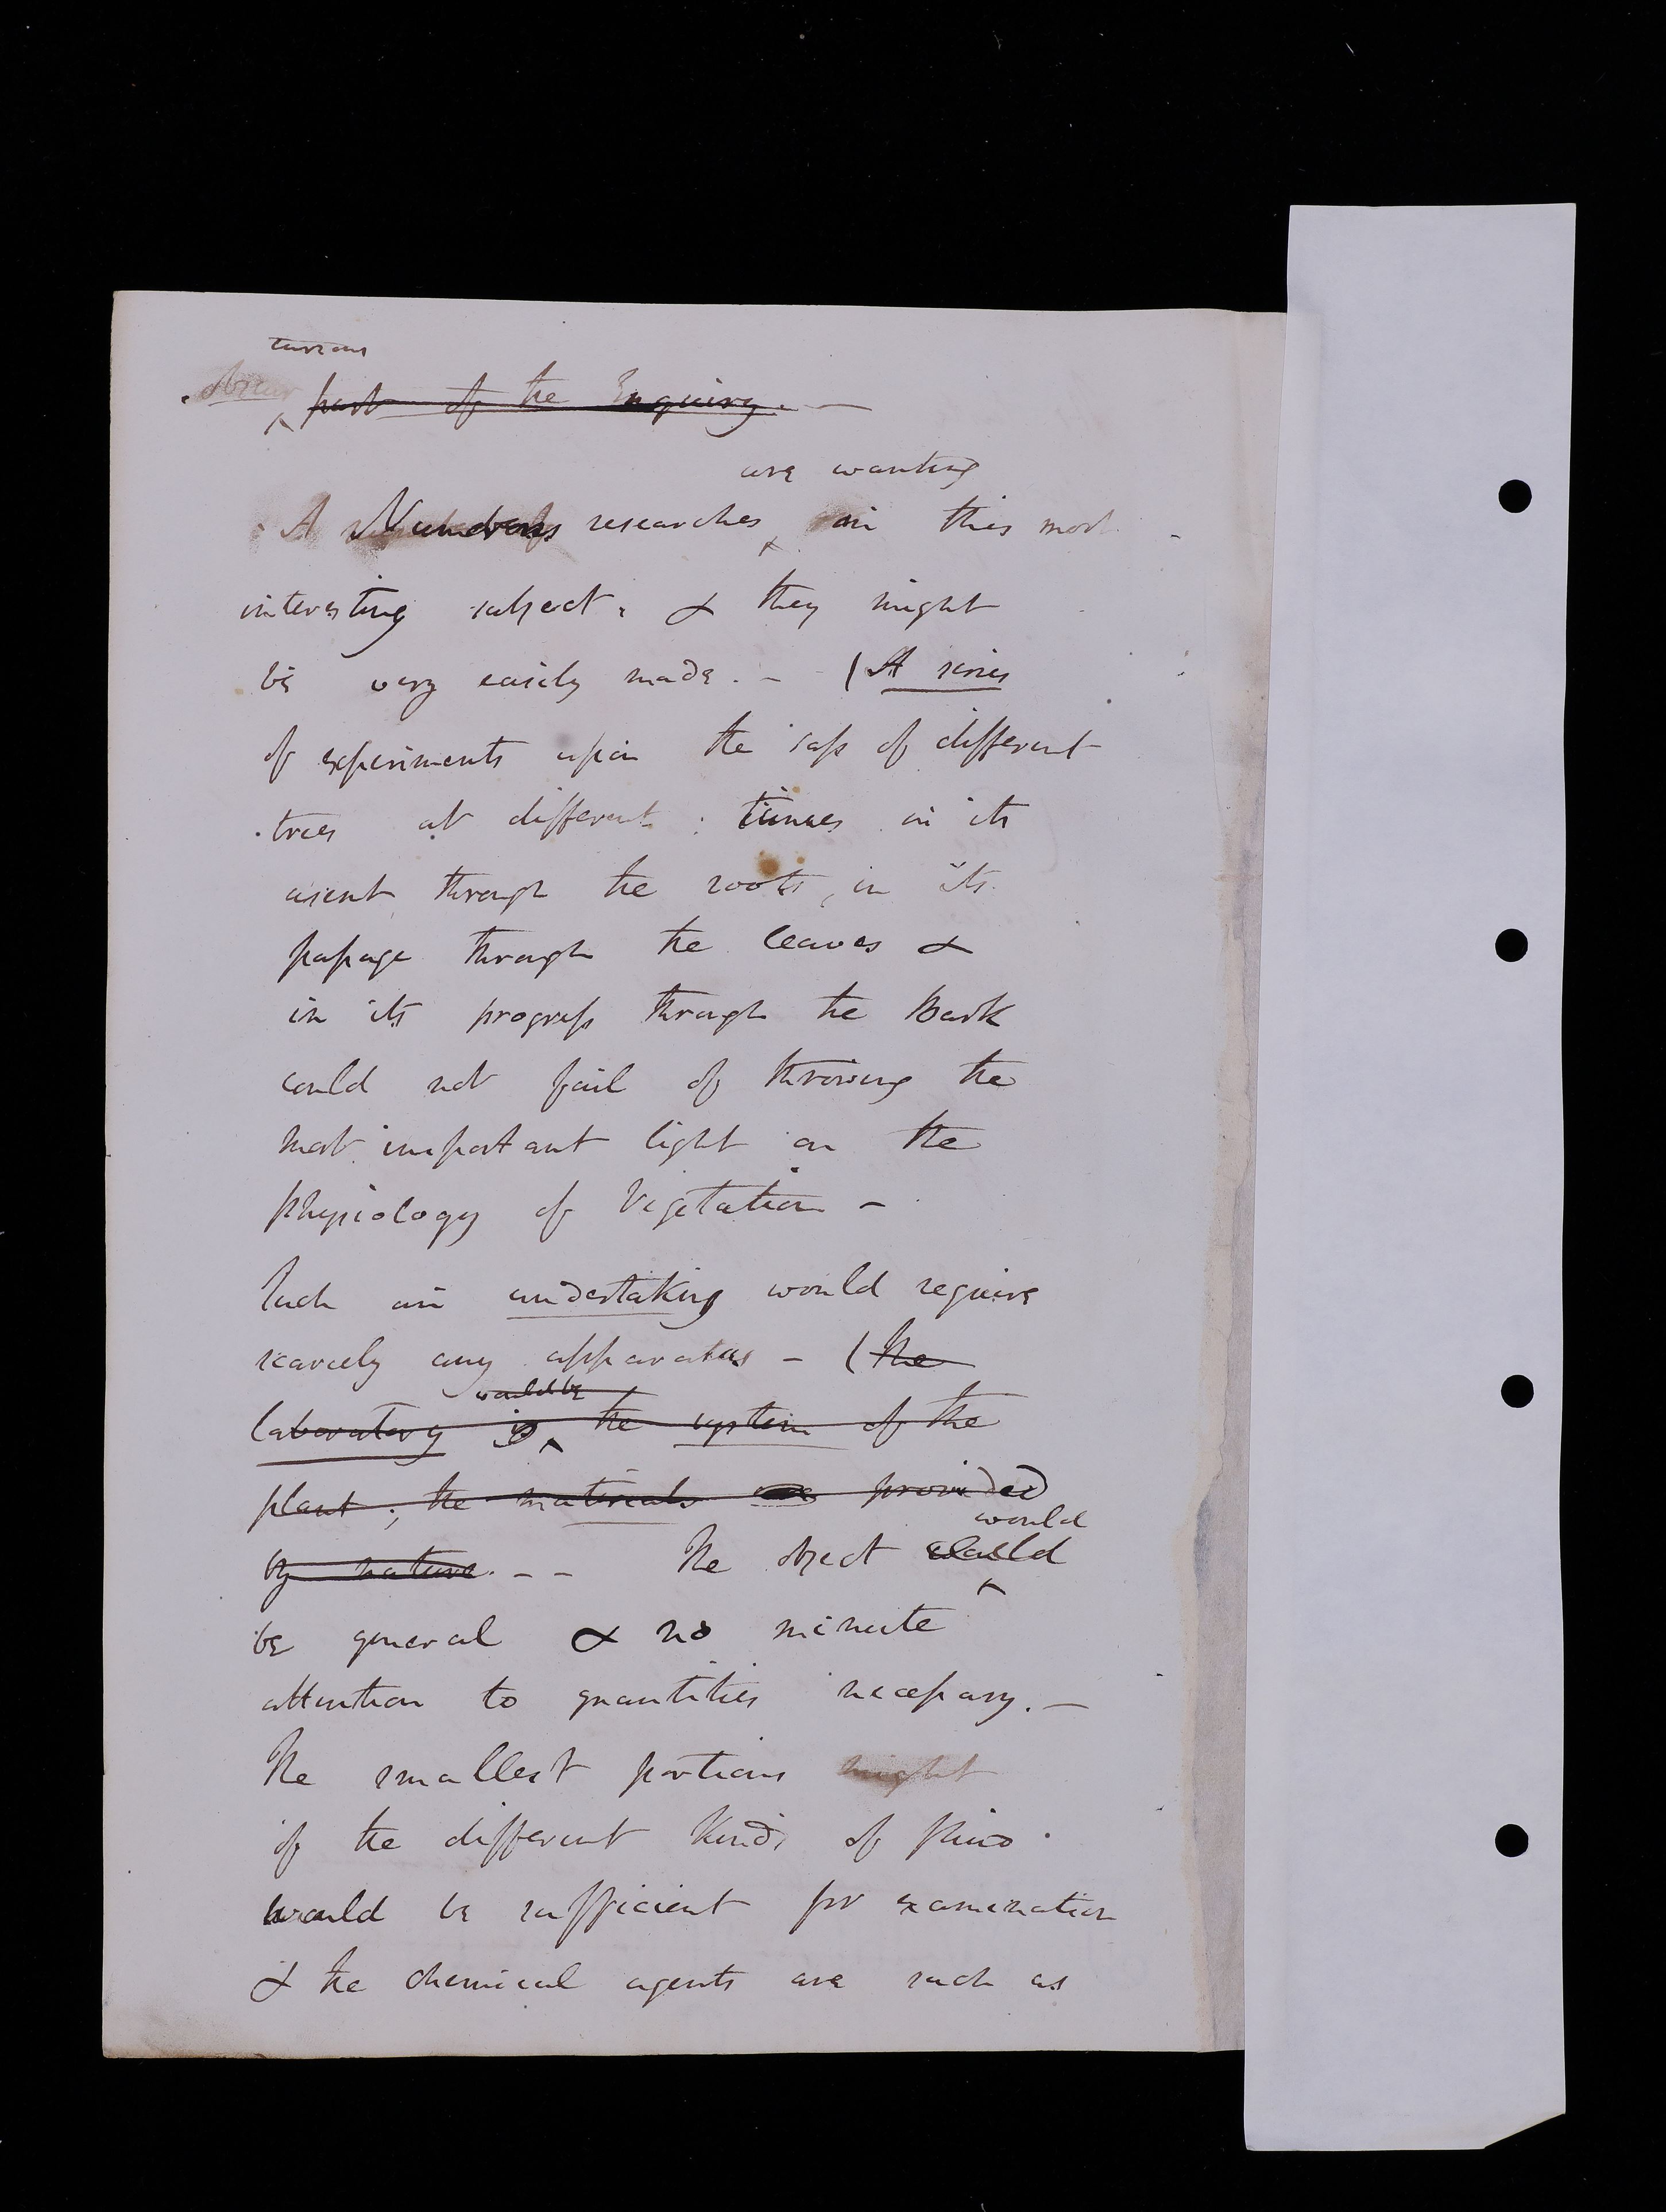 curious
part of the Enquiry. —
are wanting
A Numerous researches in this most
interesting subject, & they might
be very easily made. — (A series
of experiments upon the sap of different
trees at different times in its
ascent through the roots, in its
passage through the leaves &
in its progress through the Bark
could not fail of throwing the
most important light on the
physiology of Vegetation —
Such an undertaking would require
scarcely any apparatus — (The
would be
laboratory is the system of the
plant; the materials provided
would
by nature. — — The object could
be general & no minute
attention to quantities necessary. —
The smallest portions might
of the different kinds of
would be sufficient for examination
& the chemical agents are such as